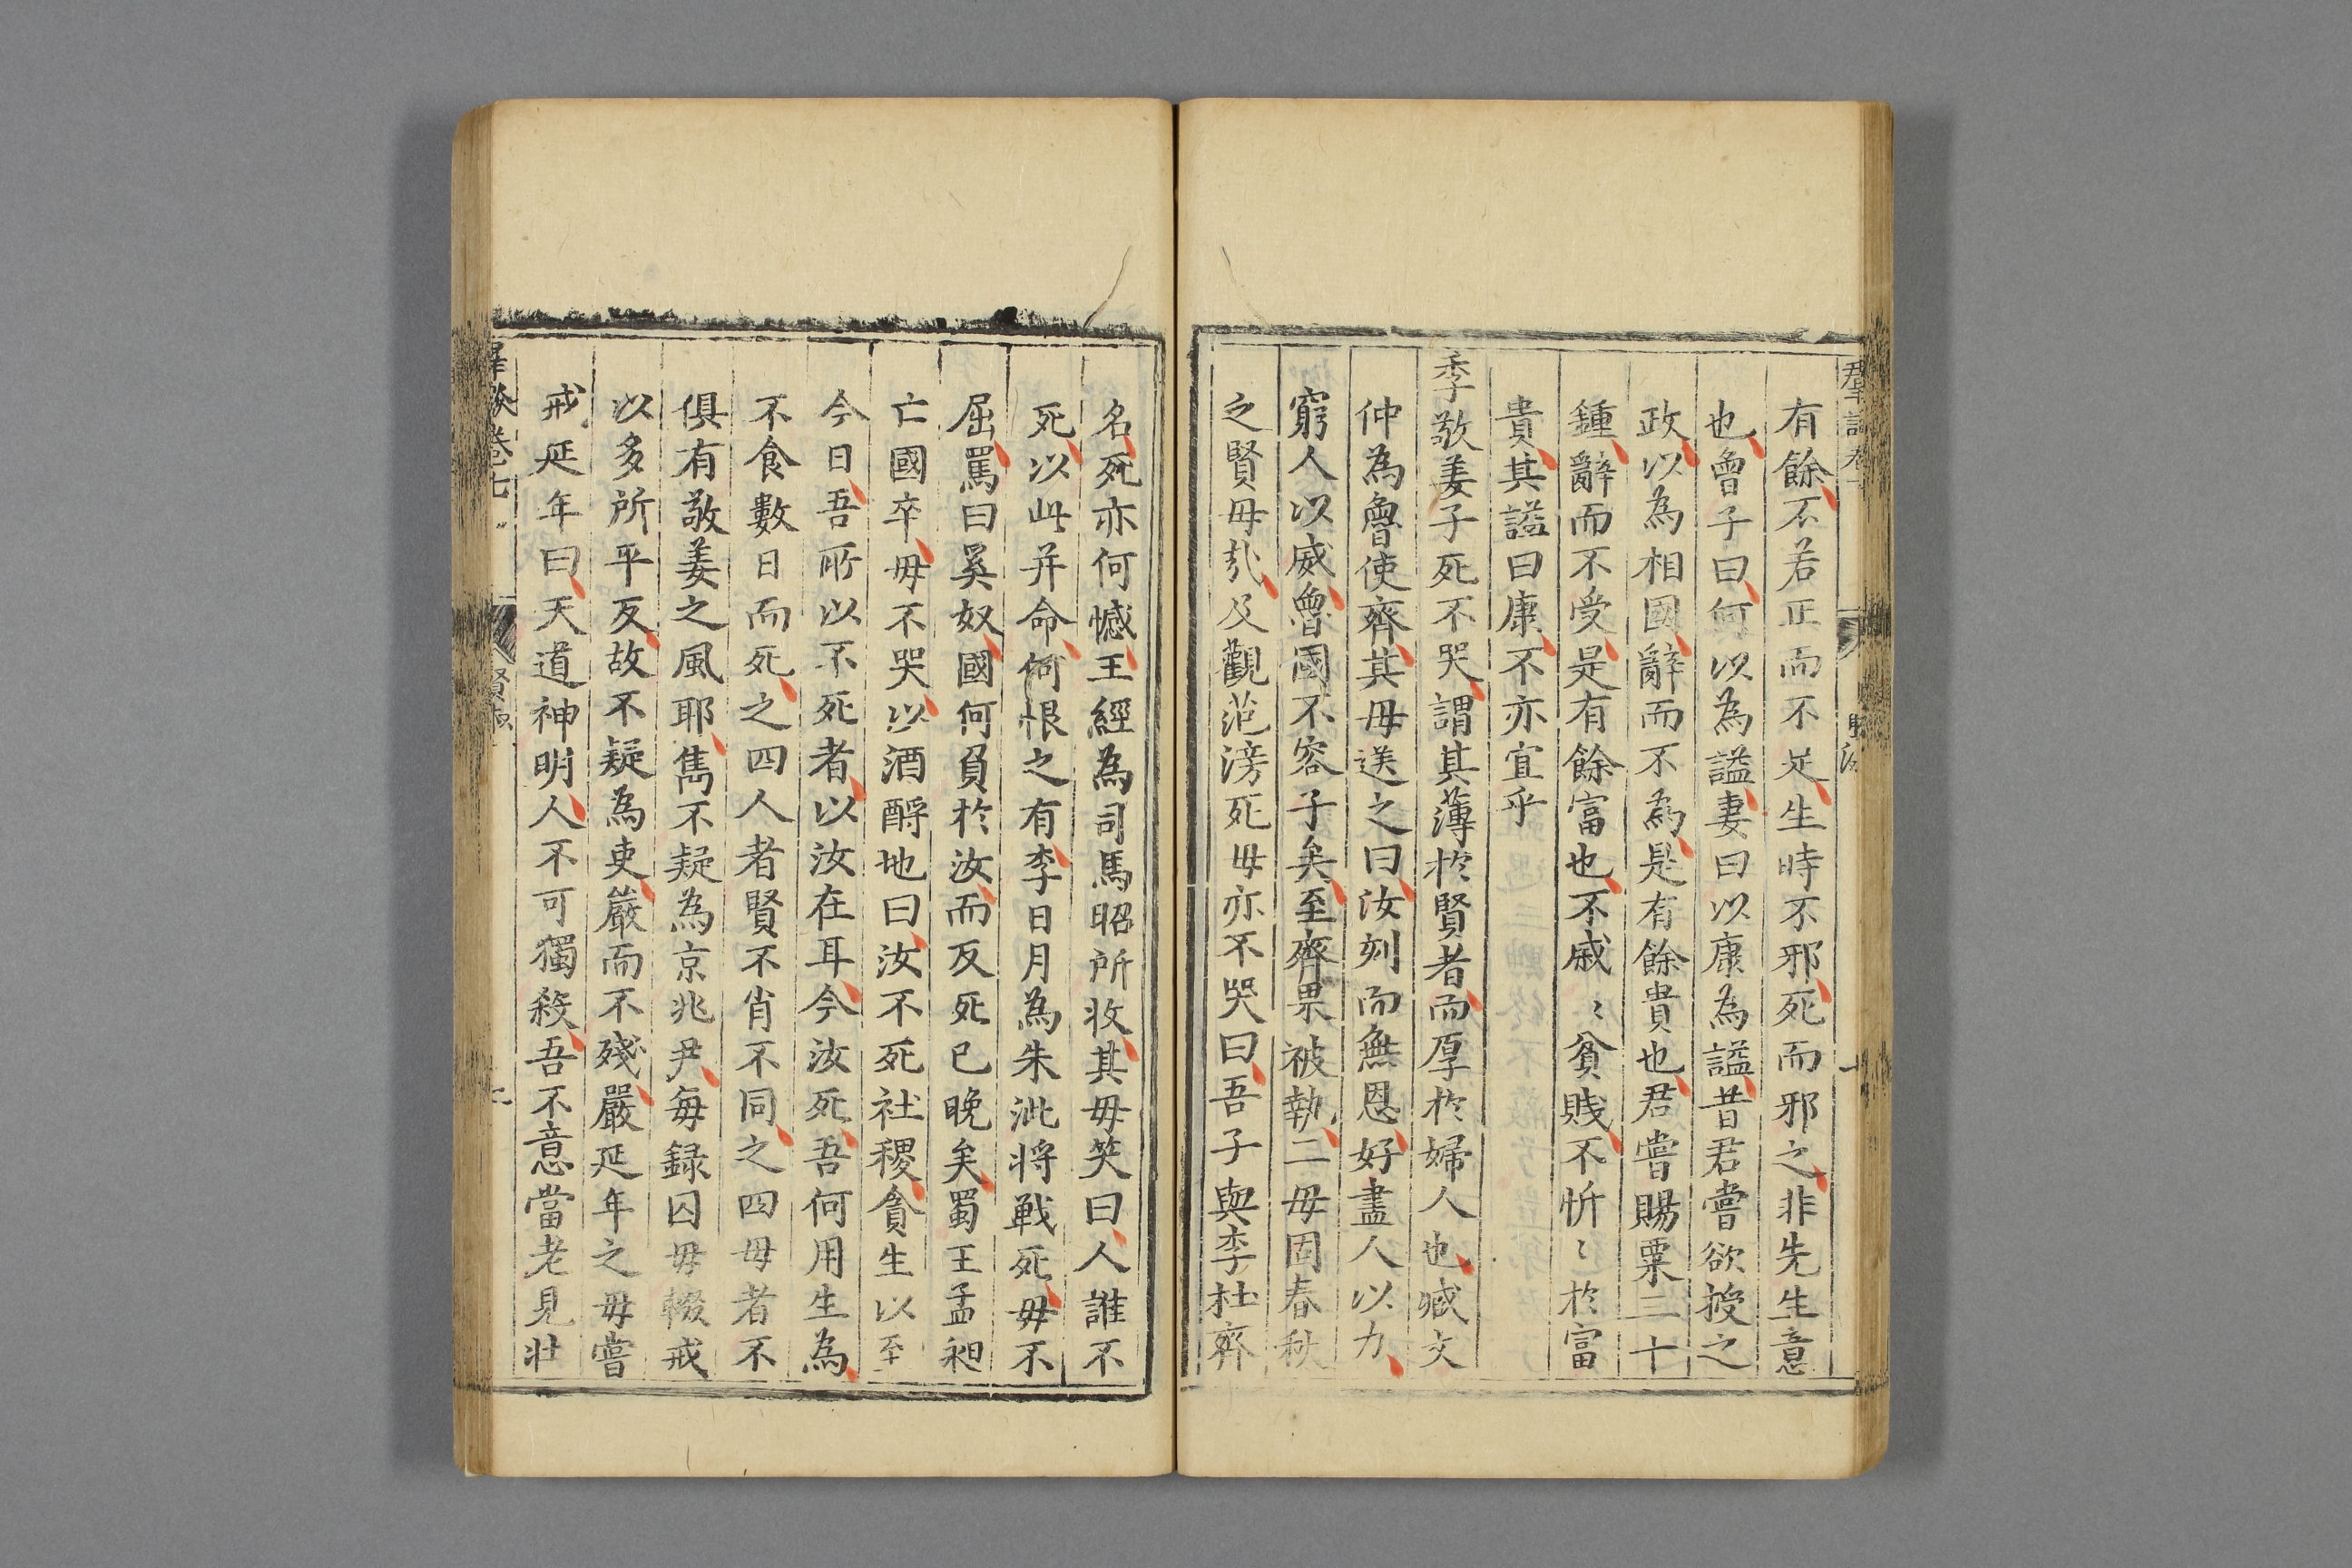 有餘不若正而不足生時不邪死而邪之非先生意
也曾子曰何以為謚妻曰以康為謚昔君嘗欲授之
政以為相國辭而不為是有餘貴也君嘗賜粟三十
鍾辭而不受是有餘富也不戚〻貧賤不忻〻於富
貴其謚曰康不亦宜乎
季敬姜子死不哭謂其薄於賢者而厚於婦人也臧文
仲為魯使齊其毋送之曰汝刻而無恩好盡人以力
窮人以威魯國不容子矣至齊果被執二毋固春秋
之賢毋㢤及觀范滂死毋亦不哭曰吾子與李杜齊
名死亦何憾王經為司馬昭所收其毋笑曰人誰不
死以此并命何恨之有李日月為朱泚將戰死毋不
屈罵曰奚奴國何負於汝而反死已晚矣蜀王孟昶
亡國卒毋不哭以酒酹地曰汝不死社稷貪生以至
今日吾所以不死者以汝在耳今汝死吾何用生為
不食數日而死之四人者賢不肖不同之四母者不
俱有敬姜之風耶雋不疑為京兆尹每録囚毋輟戒
以多所平反故不疑為吏嚴而不殘嚴延年之毋嘗
戒延年曰天道神明人不可獨殺吾不意當老見壯
卷七